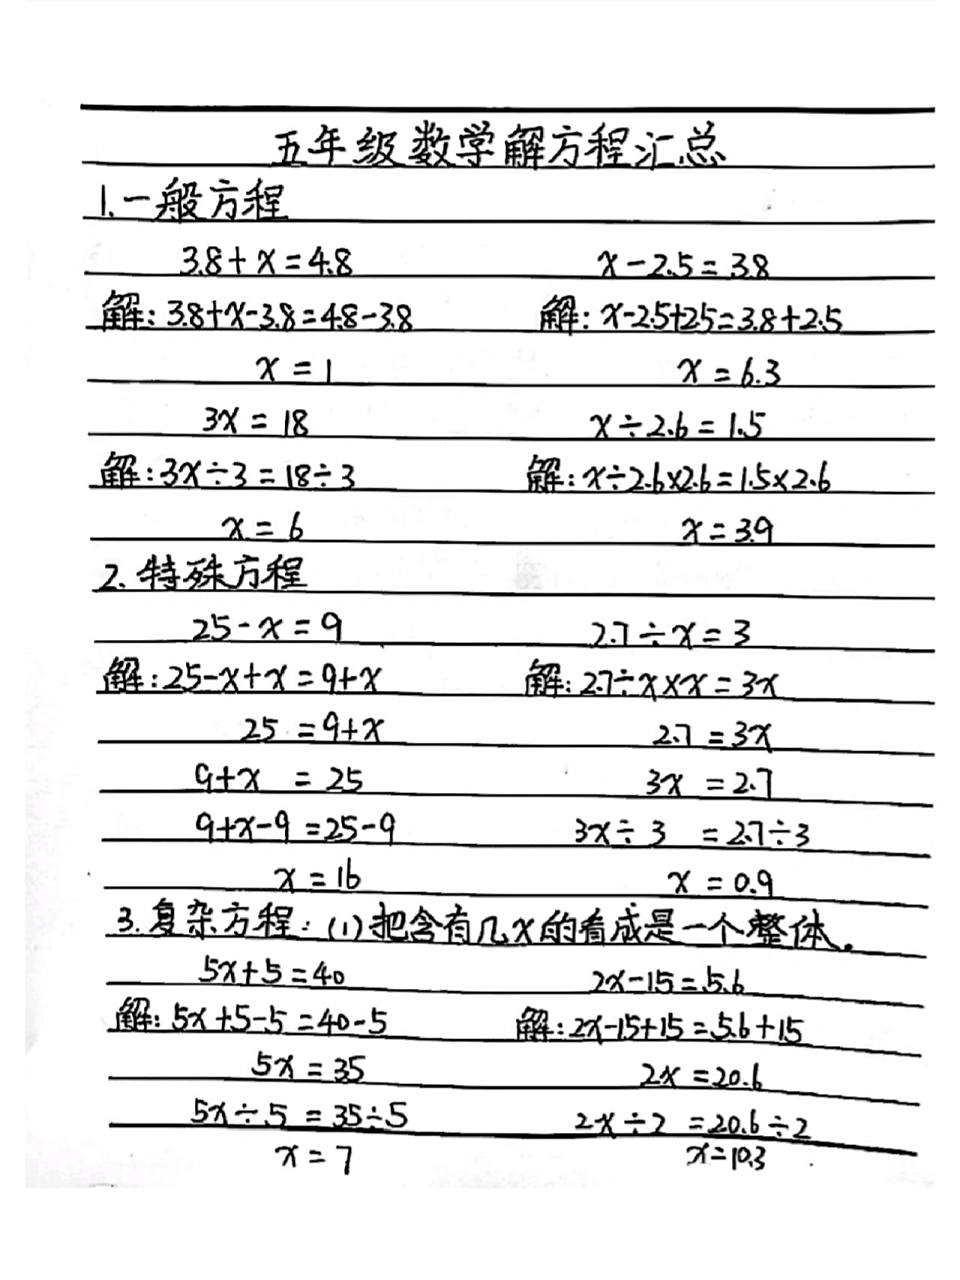 五年级数学解方程汇总
1.一般方程
3.8+x=4.8 x-2.5=3.8
解:3.8+x-3.8=4.8-3.8 解:x-2.5+2.5=3.8+2.5
x=1 x=6.3
3x=18 x÷2.6=1.5
解:3x÷3=18÷3 解:x÷2.6×2.6=1.5×2.6
x=6 x=3.9
2.特殊方程
25-x=9 2.7÷x=3
解:25-x+x=9+x 解:2.7÷x×x=3x
25=9+x 2.7=3x
9+x=25 3x=2.7
9+x-9=25-9 3x÷3=2.7÷3
x=16 x=0.9
3.复杂方程:(1)把含有几x的看成是一个整体。
5x+5=40 2x-15=5.6
解:5x+5-5=40-5 解:2x-15+15=5.6+15
5x=35 2x=20.6
5x÷5=35÷5 2x÷2=20.6÷2
x=7 x=10.3